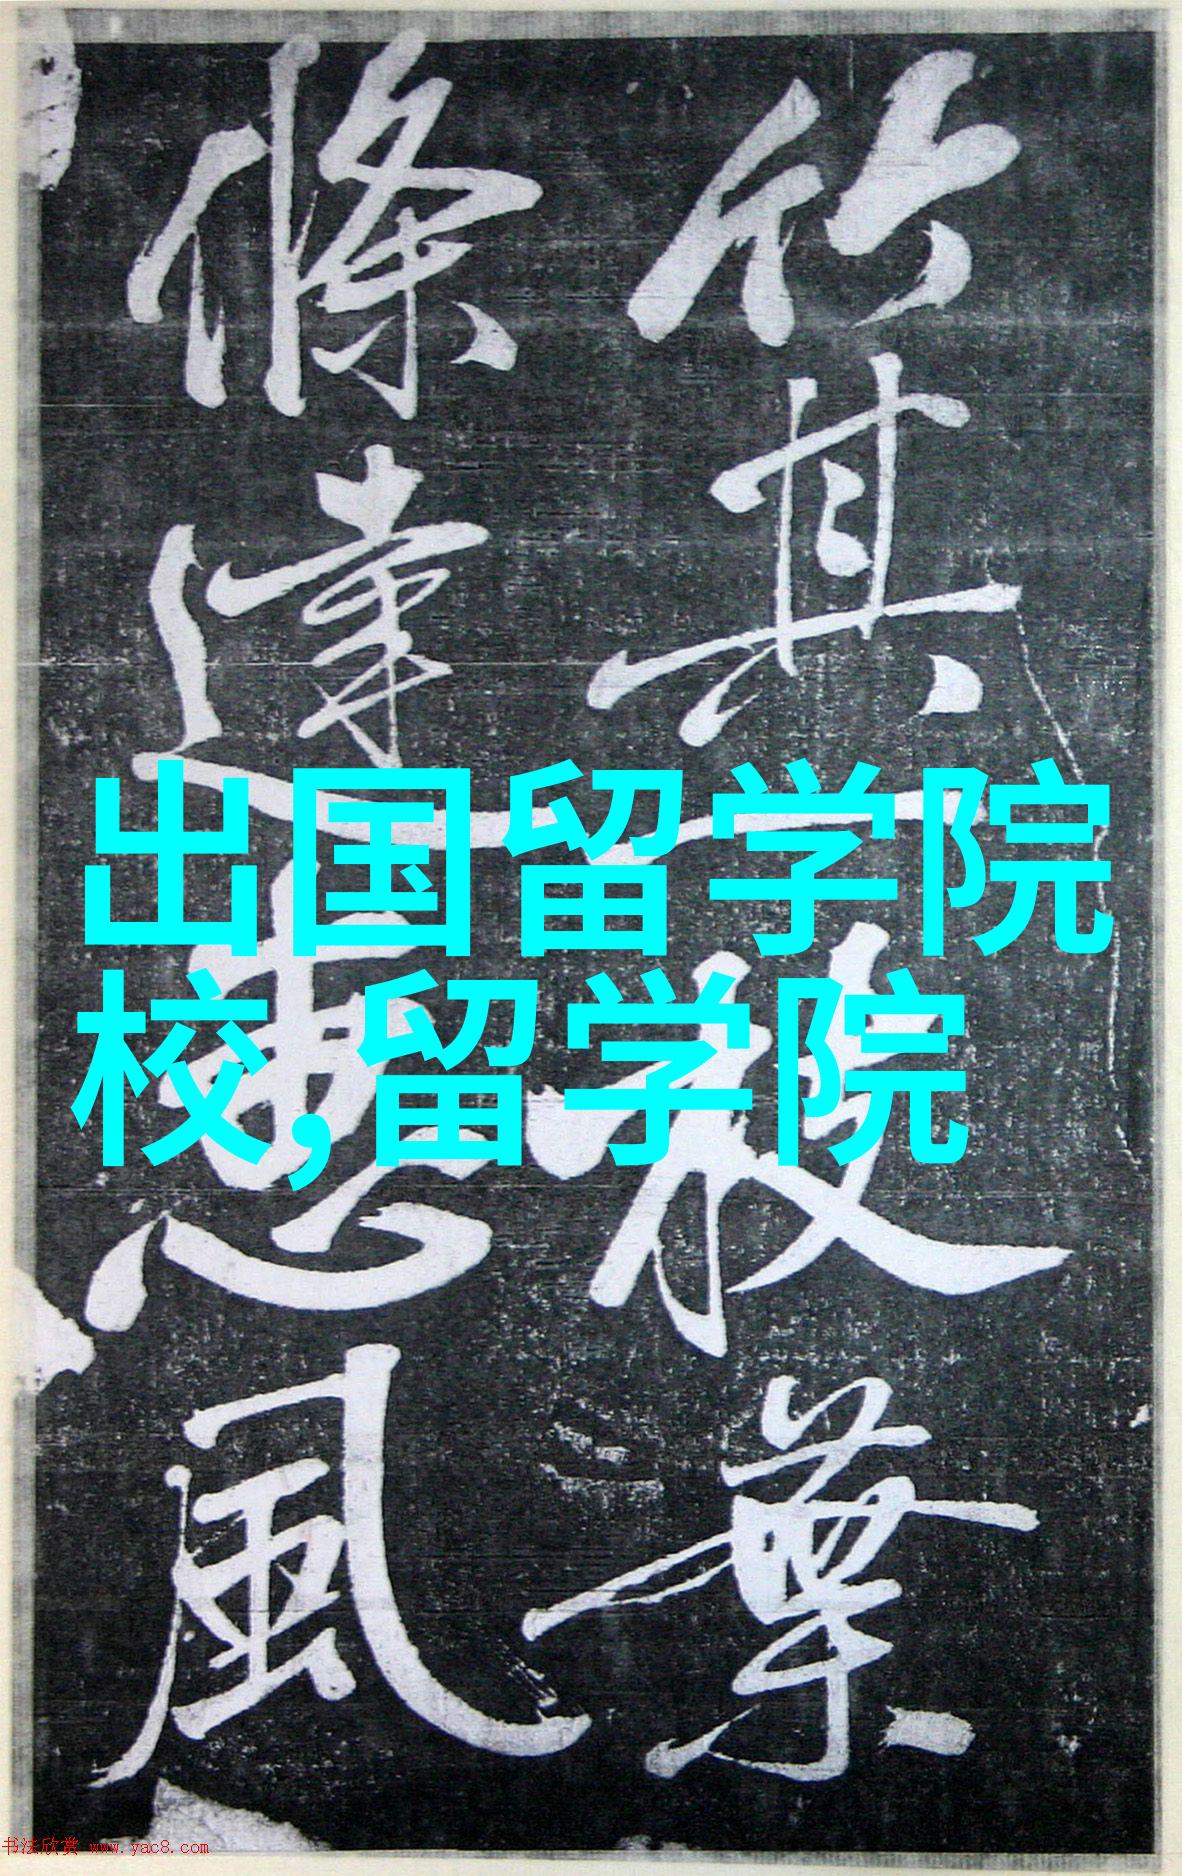 其枝葉
條達惠風
出国留学院
校,留学院
书法欣赏 www.yac8.com